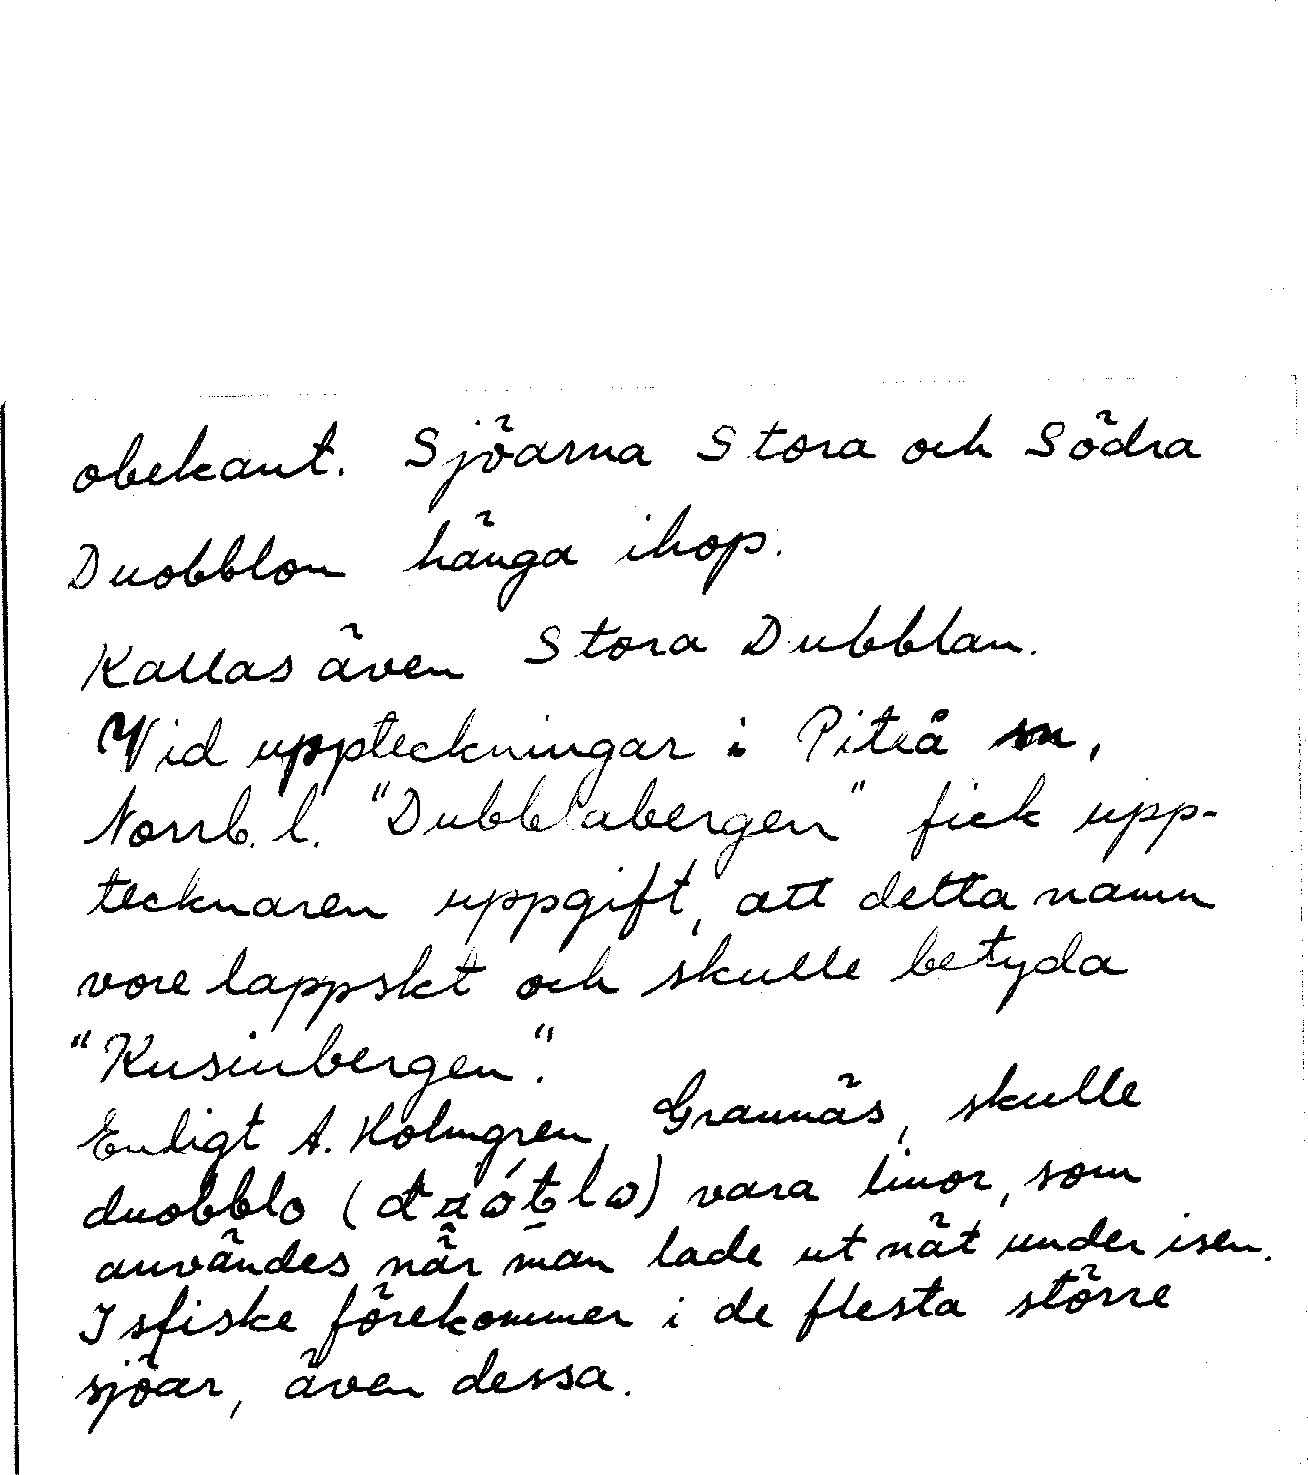 obekant. Sjöarna Stora och Södra
Duobblon hänga ihop.
Kallas även Stora Dubblan.
Vid uppteckningar i Piteå sn,
Norrb. l. "Dubblabergen" fick upp-
tecknaren uppgift, att detta namn
vore lappskt och skulle betyda
"Kusinbergen".
Enligt A. Holmgren, Grannäs, skulle
duobblo ( ) vara linor, som
användes när man lade ut nät under isen.
Isfiske förekommer i de flesta större
sjöar, även dessa.